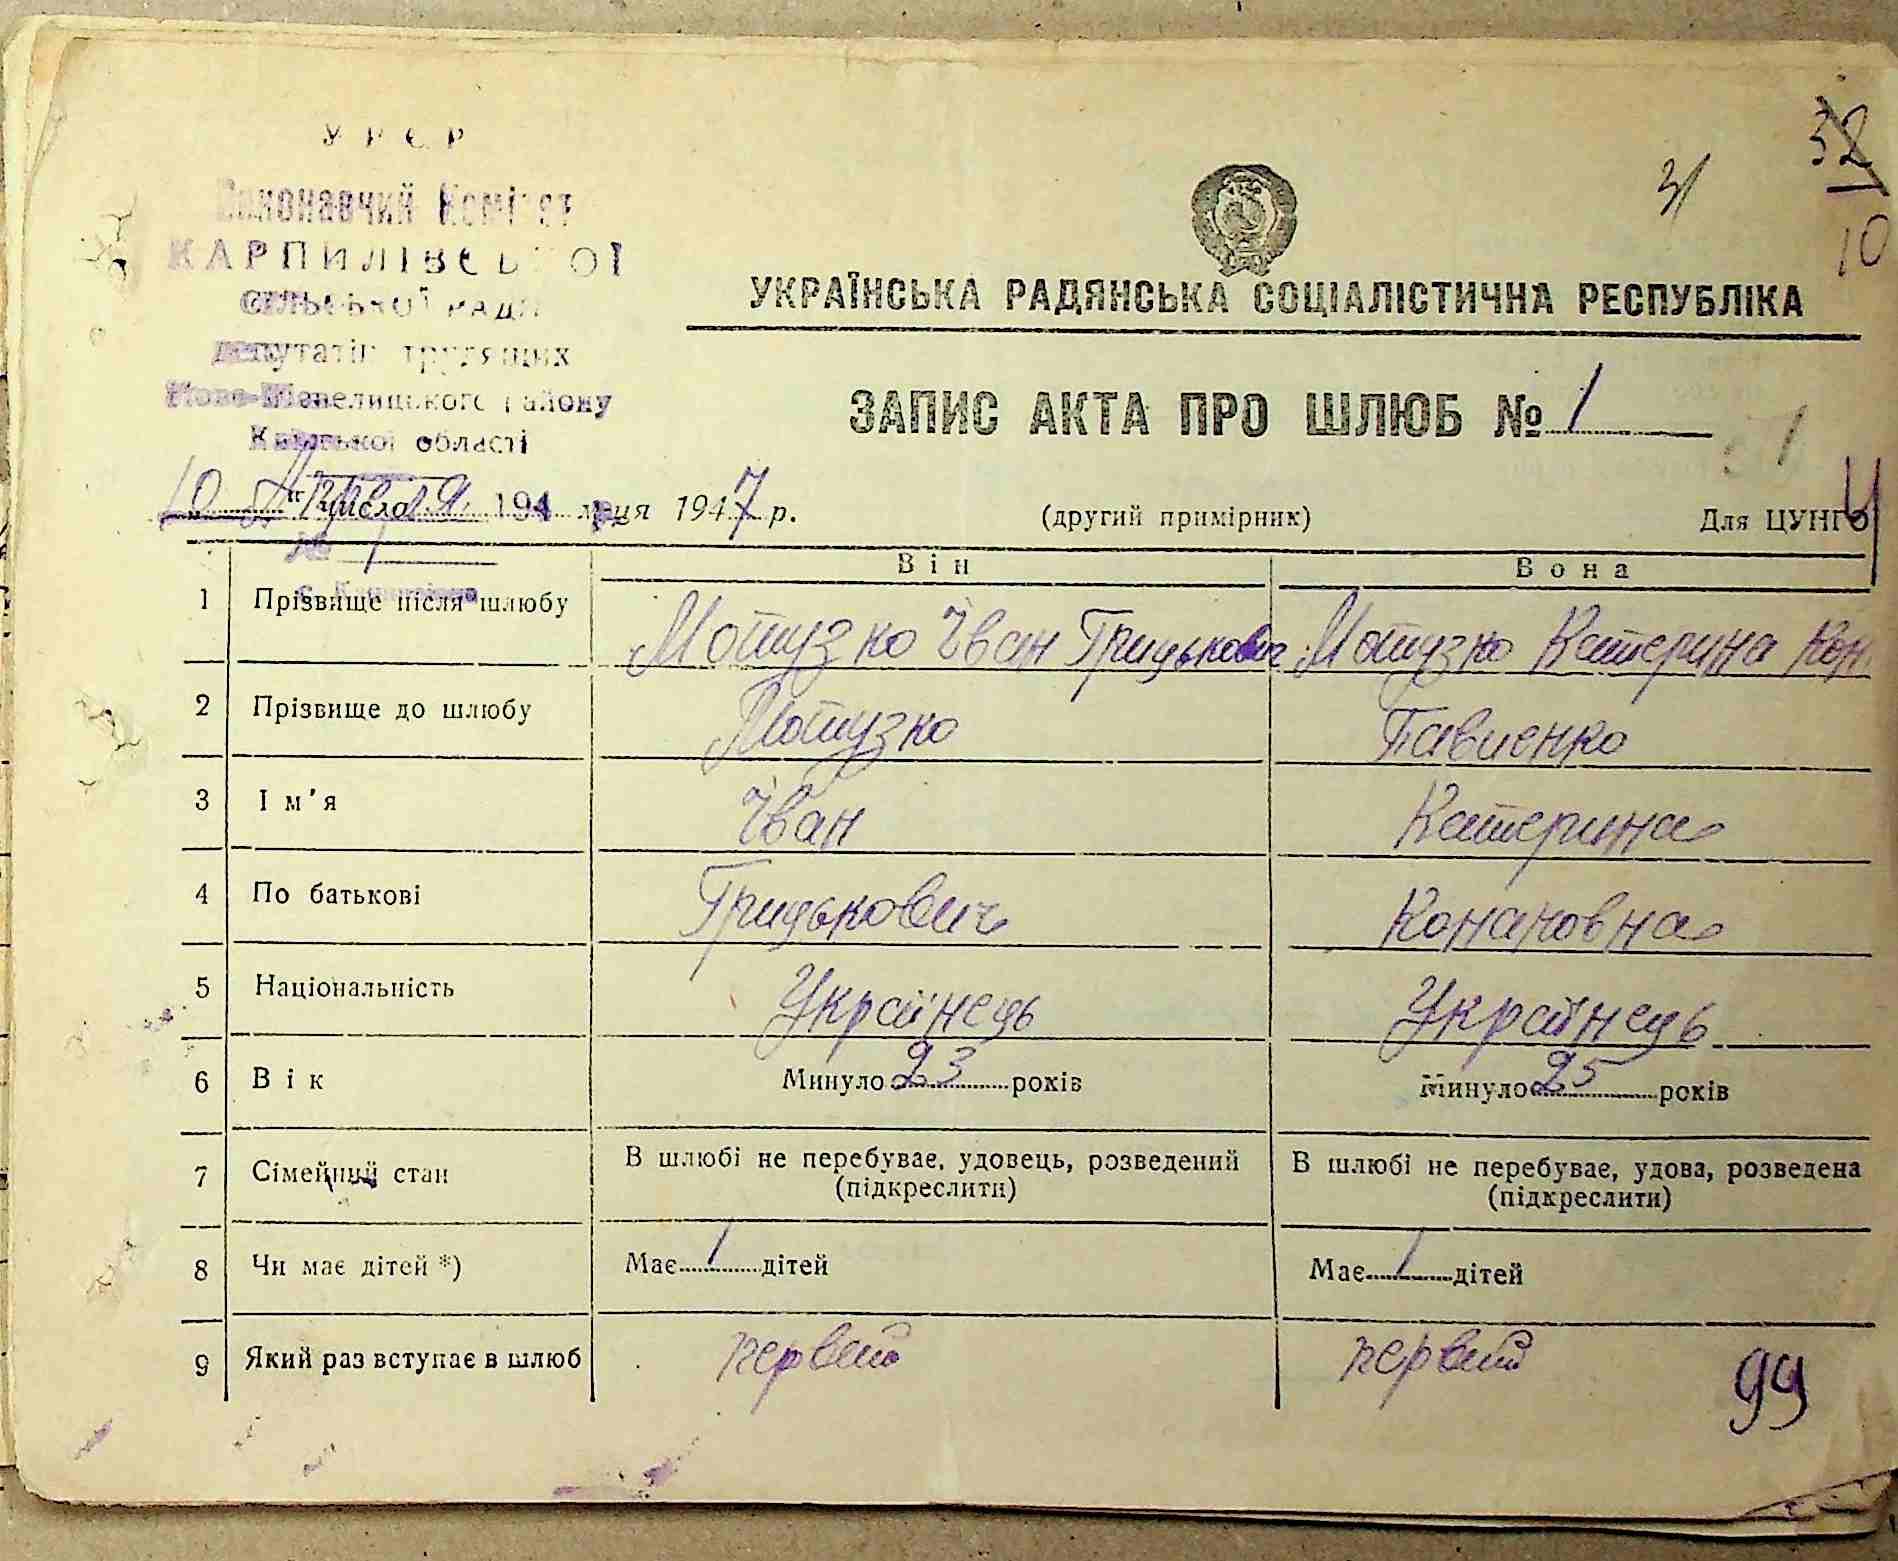 УРСР
Виконавчий Комітет
КАРПИЛІВСЬКОЇ
СІЛЬСЬКОЇ РАДИ
депутатів трудящих
Ново-Шепелицького району
Київської області
32
31
10
УКРАЇНСЬКА РАДЯНСЬКА СОЦІАЛІСТИЧНА РЕСПУБЛІКА
ЗАПИС АКТА ПРО ШЛЮБ № 1
10 Апреля 194 місяця 1947 р.
(другий примірник)
Для ЦУНГО
№ 1
Він Вона
1 Прізвище після шлюбу Мотузко Іван Грицькович Мотузко Катерина Кон
2 Прізвище до шлюбу Мотузко Павленко
3 Ім'я Іван Катерина
4 По батькові Грицькович Конановна
5 Національність Українець Українець
6 Вік Минуло 23 років Минуло 25 років
7 Сімейний стан В шлюбі не перебуває, удовець, розведений (підкреслити) В шлюбі не перебуває, удова, розведена (підкреслити)
8 Чи має дітей *) Має 1 дітей Має 1 дітей
9 Який раз вступає в шлюб первый первый
99